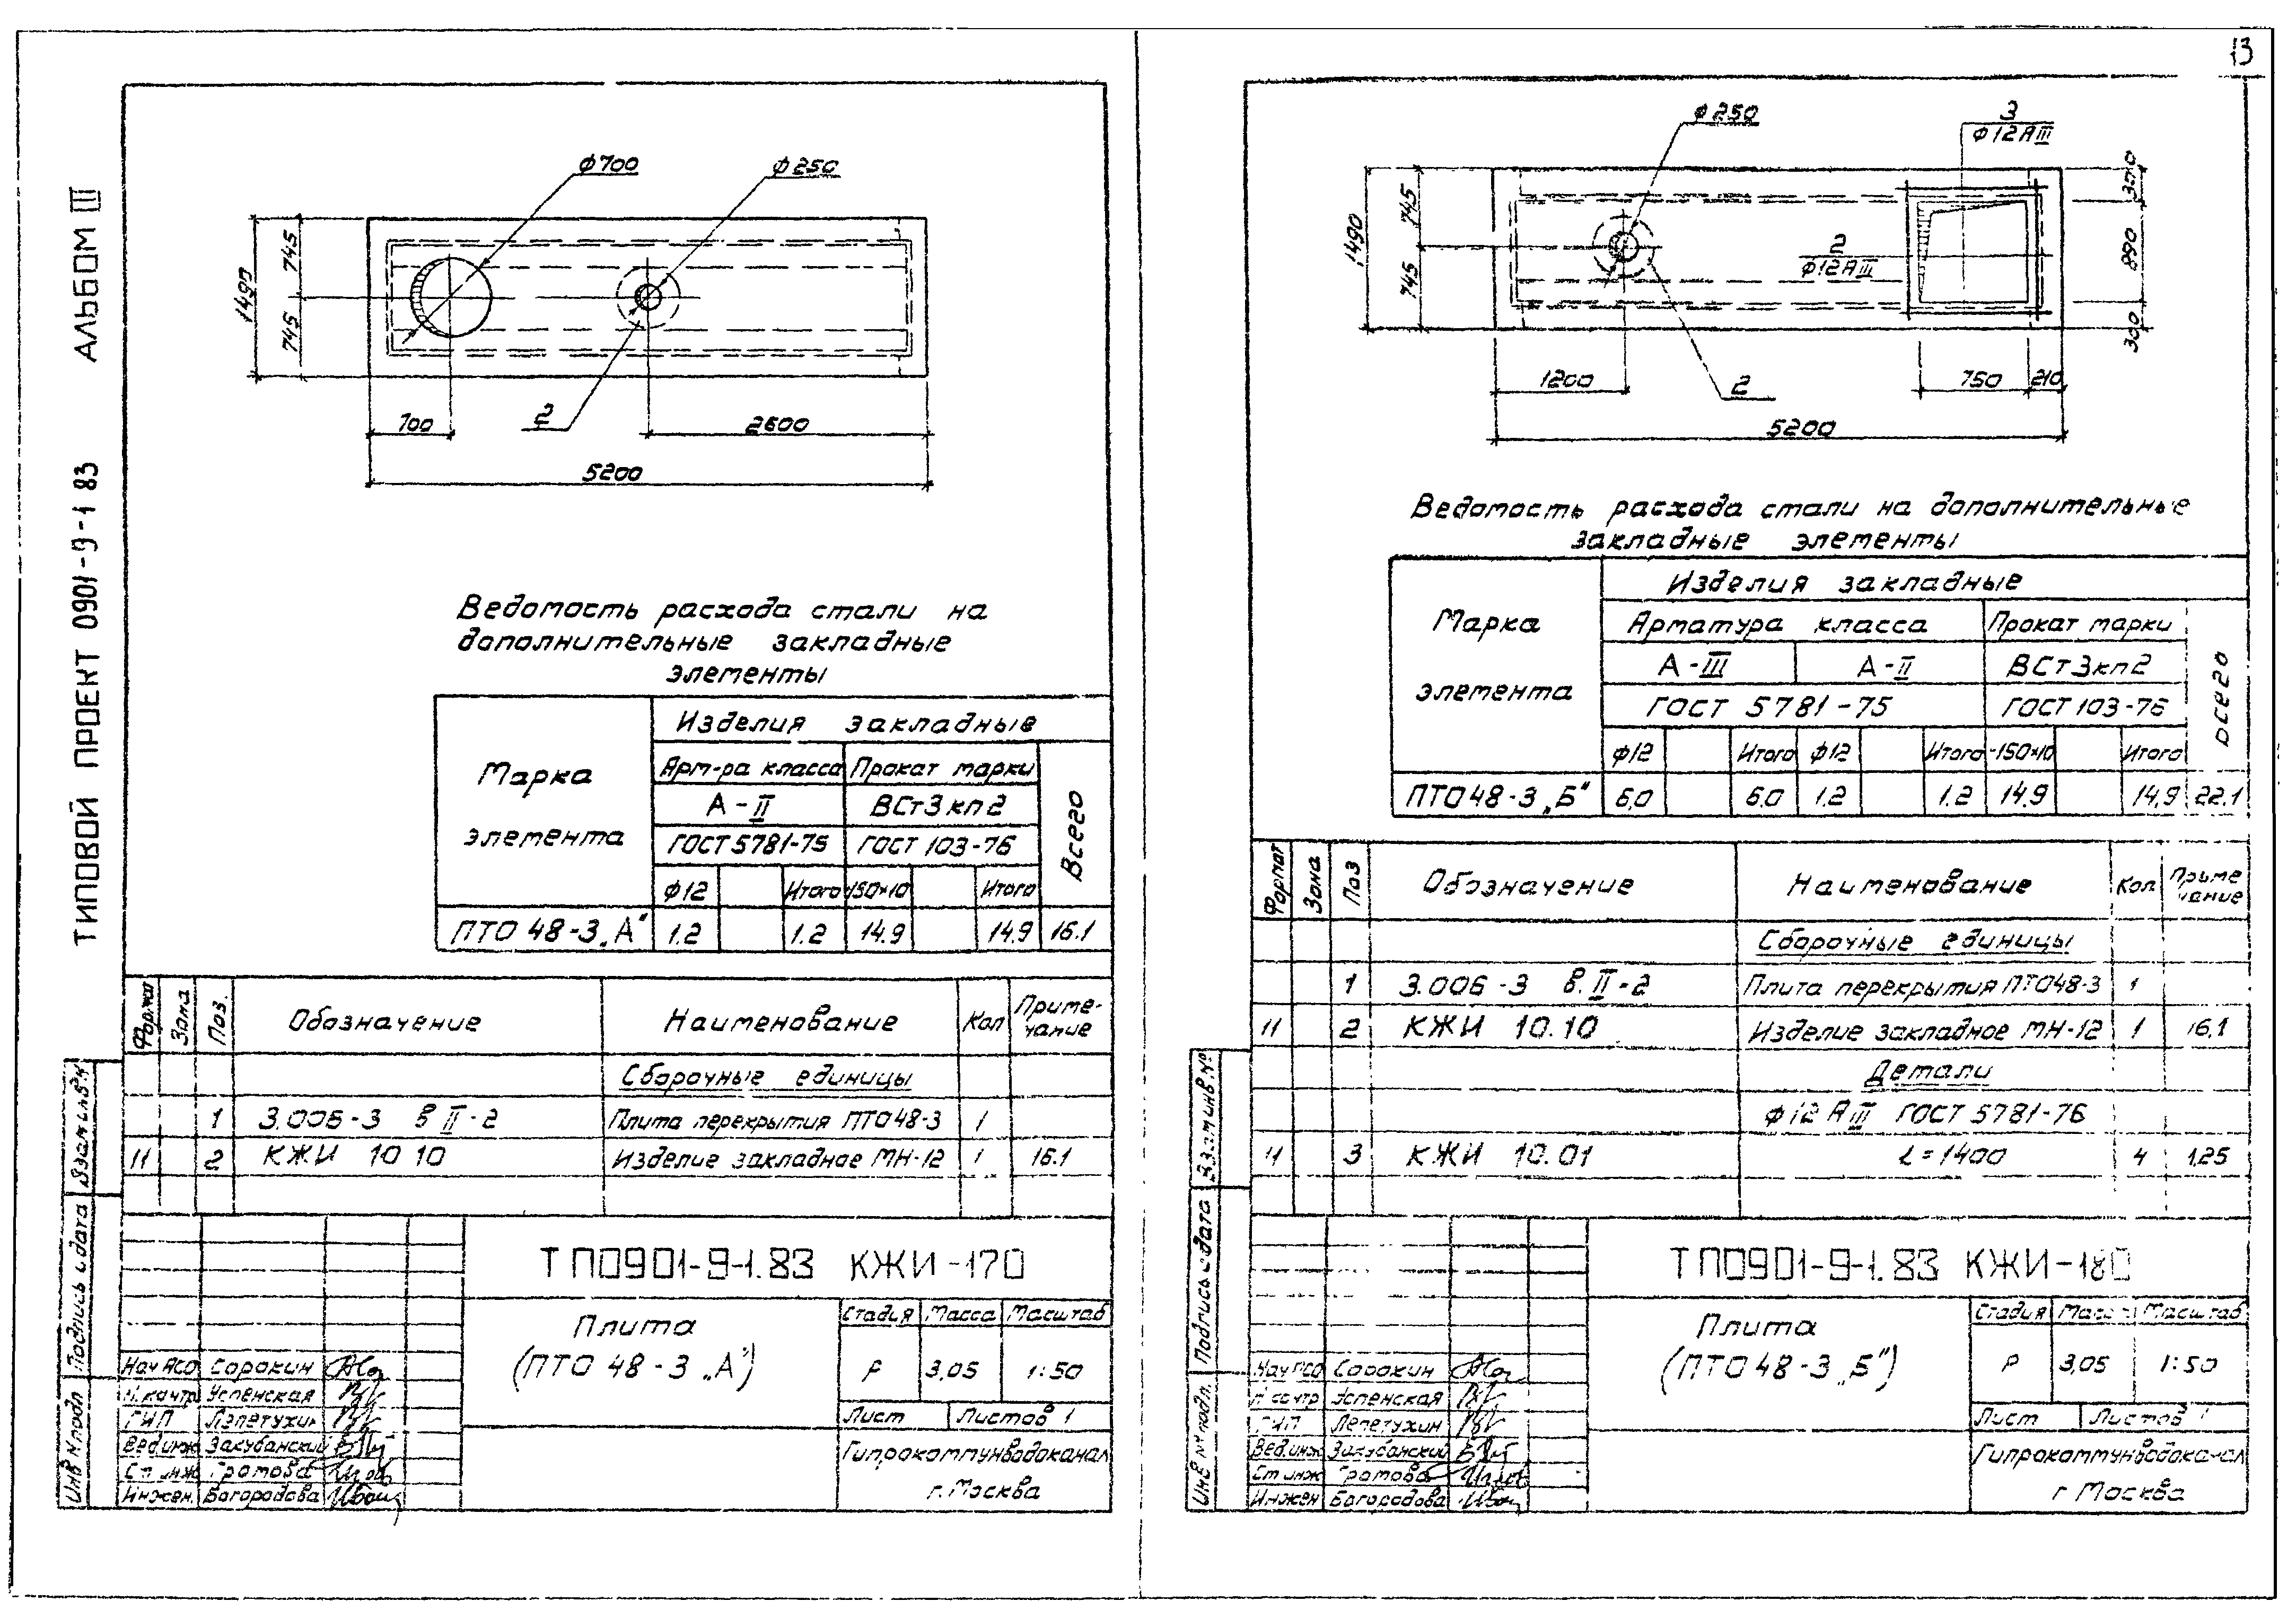 13
ТИПОВОЙ ПРОЕКТ 0901-9-1 83 АЛЬБОМ III
ф700
ф250
1490
745
745
2
700
2600
5200
Ведомость расхода стали на
дополнительные закладные
элементы
Марка
элемента
Изделия закладные
Арм-ра класса Прокат марки Всего
А-II ВСт3кп2
ГОСТ 5781-75 ГОСТ 103-76
ф12 Итого -150×10 Итого
ПТО 48-3„А" 1.2 1.2 14.9 14.9 16.1
Формат Зона Поз. Обозначение Наименование Кол Приме-
чание
Сборочные единицы
1 3.006-3 в II-2 Плита перекрытия ПТО48-3 1
11 2 КЖИ 10 10 Изделие закладное МН-12 1 16.1
ТП0901-9-1.83 КЖИ-170
Плита
(ПТО 48-3 „А")
Стадия Масса Масштаб
Р 3,05 1:50
Лист Листов 1
Гипрокоммунводоканал
г. Москва
Нач АСО Сорокин
Н.контр Успенская
ГИП Лепетухин
Вед.инж Закубанский
Ст инж Громова
Инжен. Богородова
Инв N подл Подпись и дата Взам инв.N
ф250
3
ф12АIII
1490
745
745
2
ф12АIII
300
890
300
1200
2
750
210
5200
Ведомость расхода стали на дополнительные
закладные элементы
Марка
элемента
Изделия закладные
Арматура класса Прокат марки Всего
А-III А-II ВСт3кп2
ГОСТ 5781-75 ГОСТ 103-76
ф12 Итого ф12 Итого -150×10 Итого
ПТО48-3„Б" 6,0 6.0 1.2 1.2 14.9 14.9 22.1
Формат Зона Поз Обозначение Наименование Кол Приме
чание
Сборочные единицы
1 3.006-3 в. II-2 Плита перекрытия ПТО48-3 1
11 2 КЖИ 10.10 Изделие закладное МН-12 1 16.1
Детали
ф12 АIII ГОСТ 5781-76
11 3 КЖИ 10.01 ℓ=1400 4 1,25
ТП0901-9-1.83 КЖИ-180
Плита
(ПТО48-3„Б")
Стадия Масса Масштаб
Р 3,05 1:50
Лист Листов 1
Гипрокоммунводоканал
г Москва
Нач АСО Сорокин
Н контр Успенская
ГИП Лепетухин
Вед.инж Закубанский
Ст инж Громова
Инжен Богородова
Инв № подл. Подпись и дата Взам инв.№